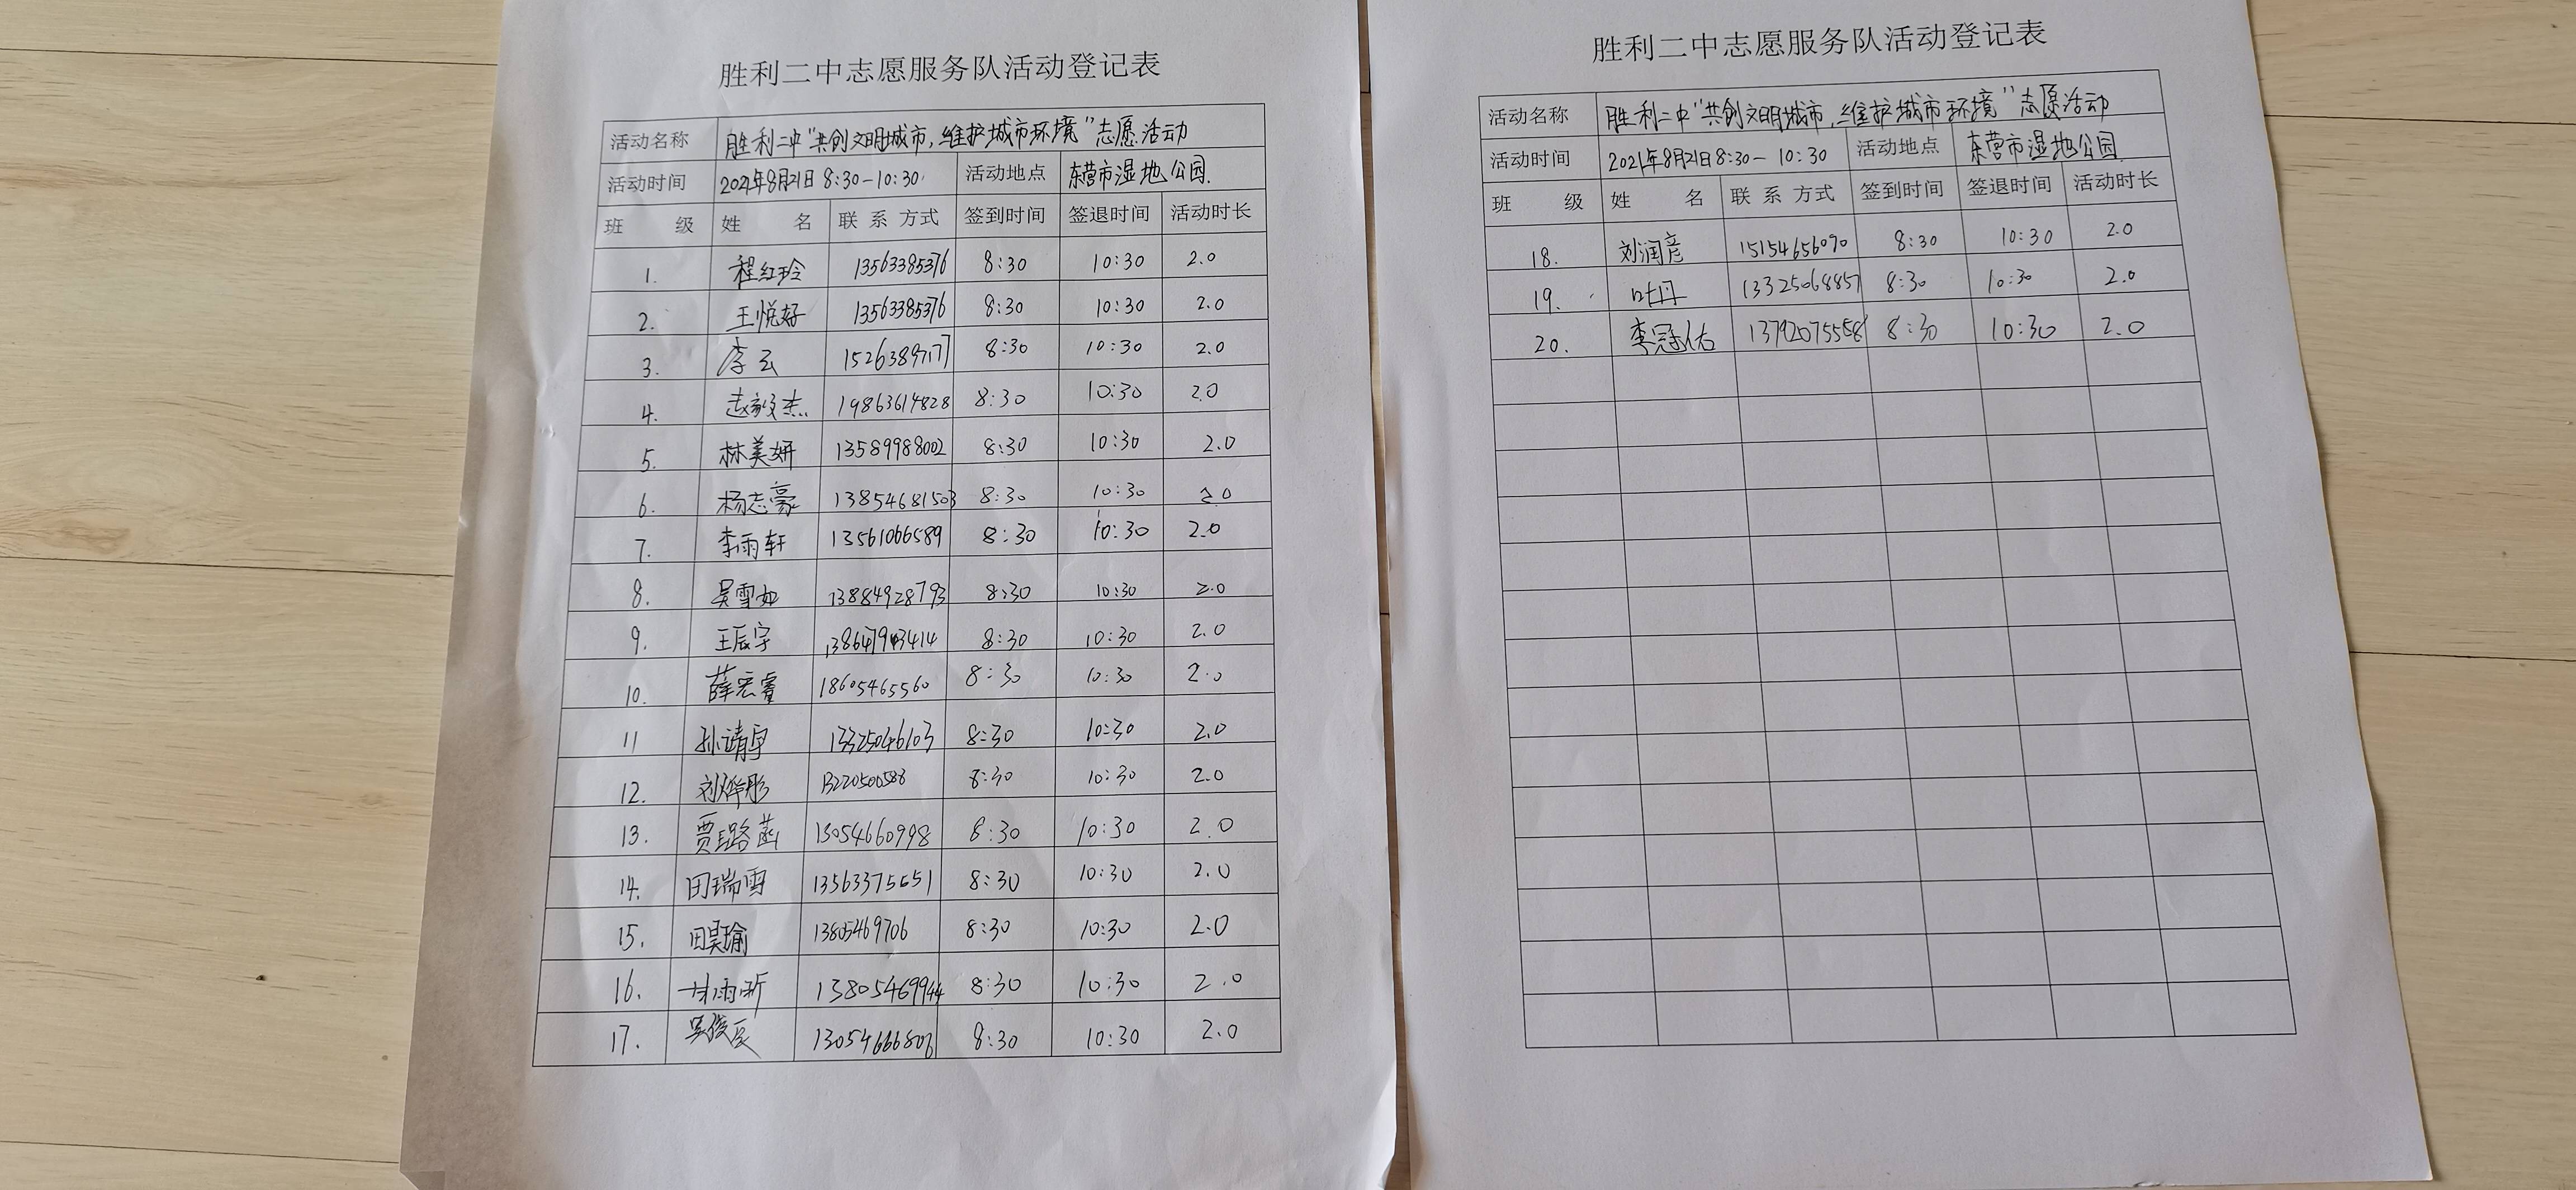 胜利二中志愿服务队活动登记表
活动名称 胜利二中“共创文明城市,维护城市环境”志愿活动
活动时间 2021年8月21日 8:30-10:30 活动地点 东营市湿地公园.
班 级 姓 名 联 系 方式 签到时间 签退时间 活动时长
1. 程红玲 13563385376 8:30 10:30 2.0
2. 王悦好 13563385376 8:30 10:30 2.0
3. 李云 8:30 10:30 2.0
4. 19863614828 8:30 10:30 2.0
5. 林美妍 13589988002 8:30 10:30 2.0
6. 杨志豪 13854681503 8:30 10:30 2.0
7. 李雨轩 13561066589 8:30 10:30 2.0
8. 吴雪如 13884928793 8:30 10:30 2.0
9. 王辰宇 8:30 10:30 2.0
10. 薛宏睿 18605465560 8:30 10:30 2.0
11 孙靖宇 13325046103 8:30 10:30 2.0
12. 刘烨彤 8:30 10:30 2.0
13. 贾璐菡 13054660998 8:30 10:30 2.0
14. 田瑞雪 13563375651 8:30 10:30 2.0
15. 田昊瑜 13805469706 8:30 10:30 2.0
16. 13805469944 8:30 10:30 2.0
17. 吴俊辰 13054666806 8:30 10:30 2.0
胜利二中志愿服务队活动登记表
活动名称 胜利二中“共创文明城市,维护城市环境”志愿活动
活动时间 2021年8月21日8:30-10:30 活动地点 东营市湿地公园.
班 级 姓 名 联 系 方式 签到时间 签退时间 活动时长
18. 刘润彦 15154656090 8:30 10:30 2.0
19. 叶丹 13325064857 8:30 10:30 2.0
20. 李冠佑 13792075558 8:30 10:30 2.0